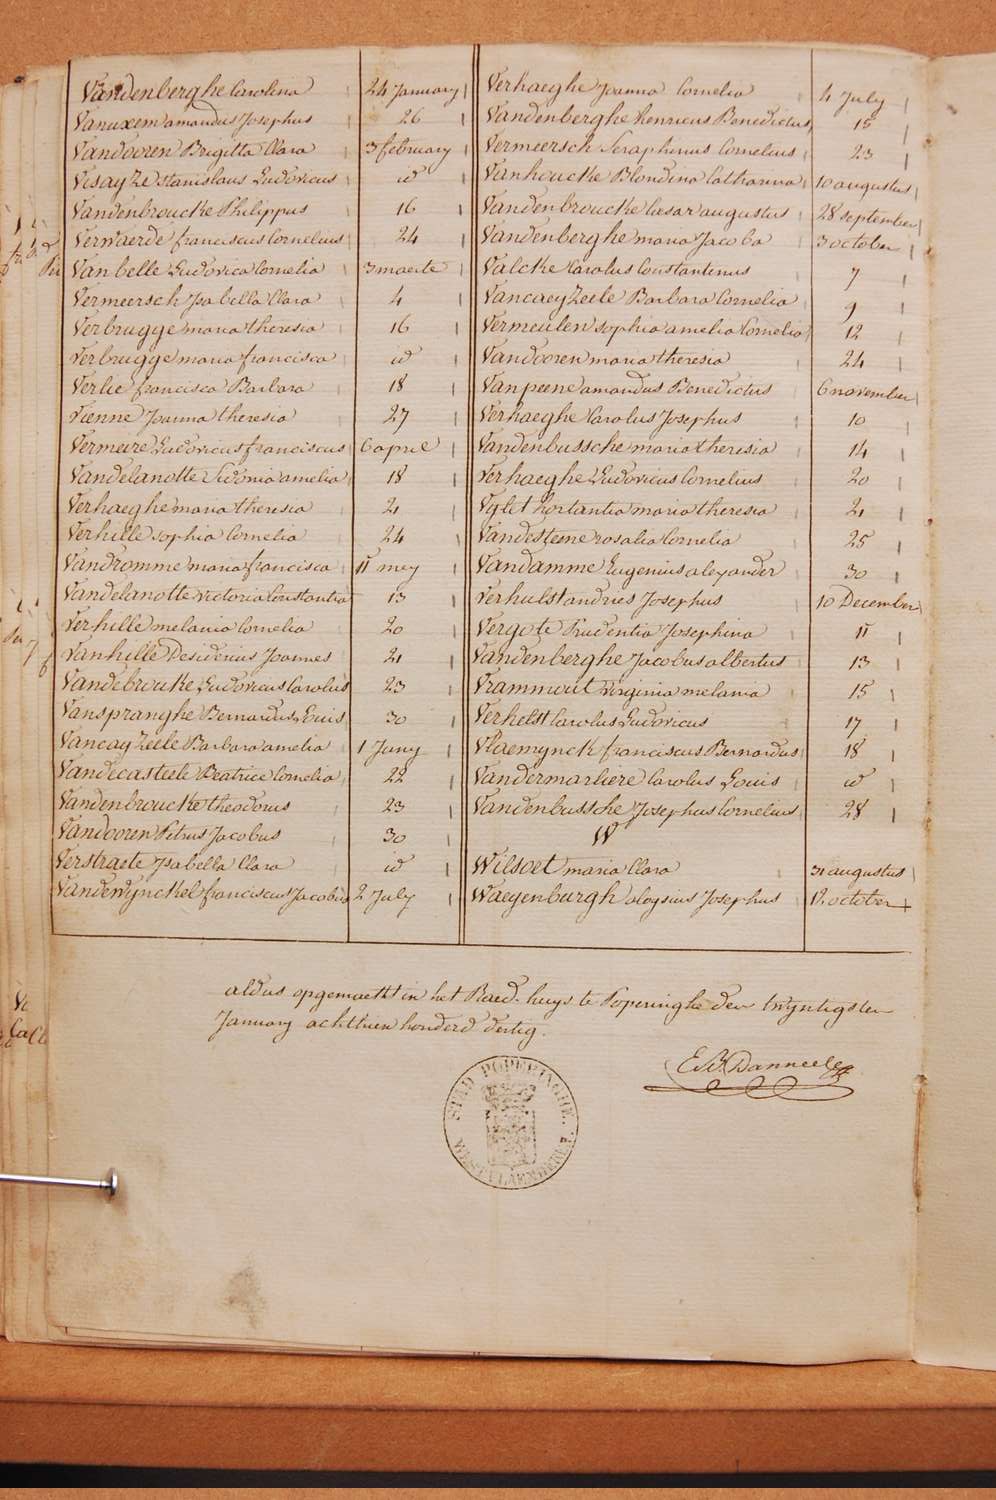 Vandenberghe Carolina 24 January
Vanuxem amandus Josephus 26
Vandooren Brigitta Clara 3 february
Visayze stanislaus Ludovicus id
Vandenbroucke Philippus 16
Verwaerde franciscus Cornelius 24
Van belle Ludovica Cornelia 3 maerte
Vermeersch Isabella Clara 4
Verbrugge maria theresia 16
Verbrugge maria francisca id
Verlie francisca Barbara 18
Vienne Joanna theresia 27
Vermeire Ludovicus franciscus 6 april
Vandelanotte Sidonia amelia 18
Verhaeghe maria theresia 21
Verhille sophia Cornelia 24
Vandromme maria francisca 11 mey
Vandelanotte victoria Constantia 13
Verhille melania Cornelia 20
Vanhille Desiderius Joannes 21
Vandebrouke Ludovicus Carolus 23
Vanspranghe Bernardus Louis 30
Vancayzeele Barbara amelia 1 Juny
Vandecasteele Beatrice Cornelia 22
Vandenbroucke theodorus 23
Vandooren Petrus Jacobus 30
Verstraete Isabella Clara id
Vandewynckel franciscus Jacobus 2 July
Verhaeghe Joanna Cornelia 4 July
Vandenberghe henricus Benedictus 15
Vermeersch Seraphinus Cornelius 23
Vanhoucke Blondina Catharina 10 augustus
Vandenbroucke Caesar augustus 28 september
Vandenberghe maria Jacoba 3 october
Valcke Carolus Constantinus 7
Vancaeyzeele Barbara Cornelia 9
Vermeulen sophia amelia Cornelia 12
Vandooren maria theresia 24
Vanpeene amandus Benedictus 6 november
Verhaeghe Carolus Josephus 10
Vandenbussche maria theresia 14
Verhaeghe Ludovicus Cornelius 20
maria theresia 21
Vandesteene rosalia Cornelia 25
Vandamme Eugenius alexander 30
Verhulst andries Josephus 10 December
Vergote Prudentia Josephina 11
Vandenberghe Jacobus albertus 13
Vrammout virginia melania 15
Verhelst Carolus Ludovicus 17
Vlaemynck franciscus Bernardus 18
Vandermarliere Carolus Louis id
Vandenbussche Josephus Cornelius 28
W
Wilsoet maria Clara 31 augustus
Waeyenburgh aloysius Josephus 12 october
aldus opgemaekt in het Raed-huys te Poperinghe den twyntigsten
January achttien honderd dertig.
STAD POPERINGHE.
WESTVLAENDEREN